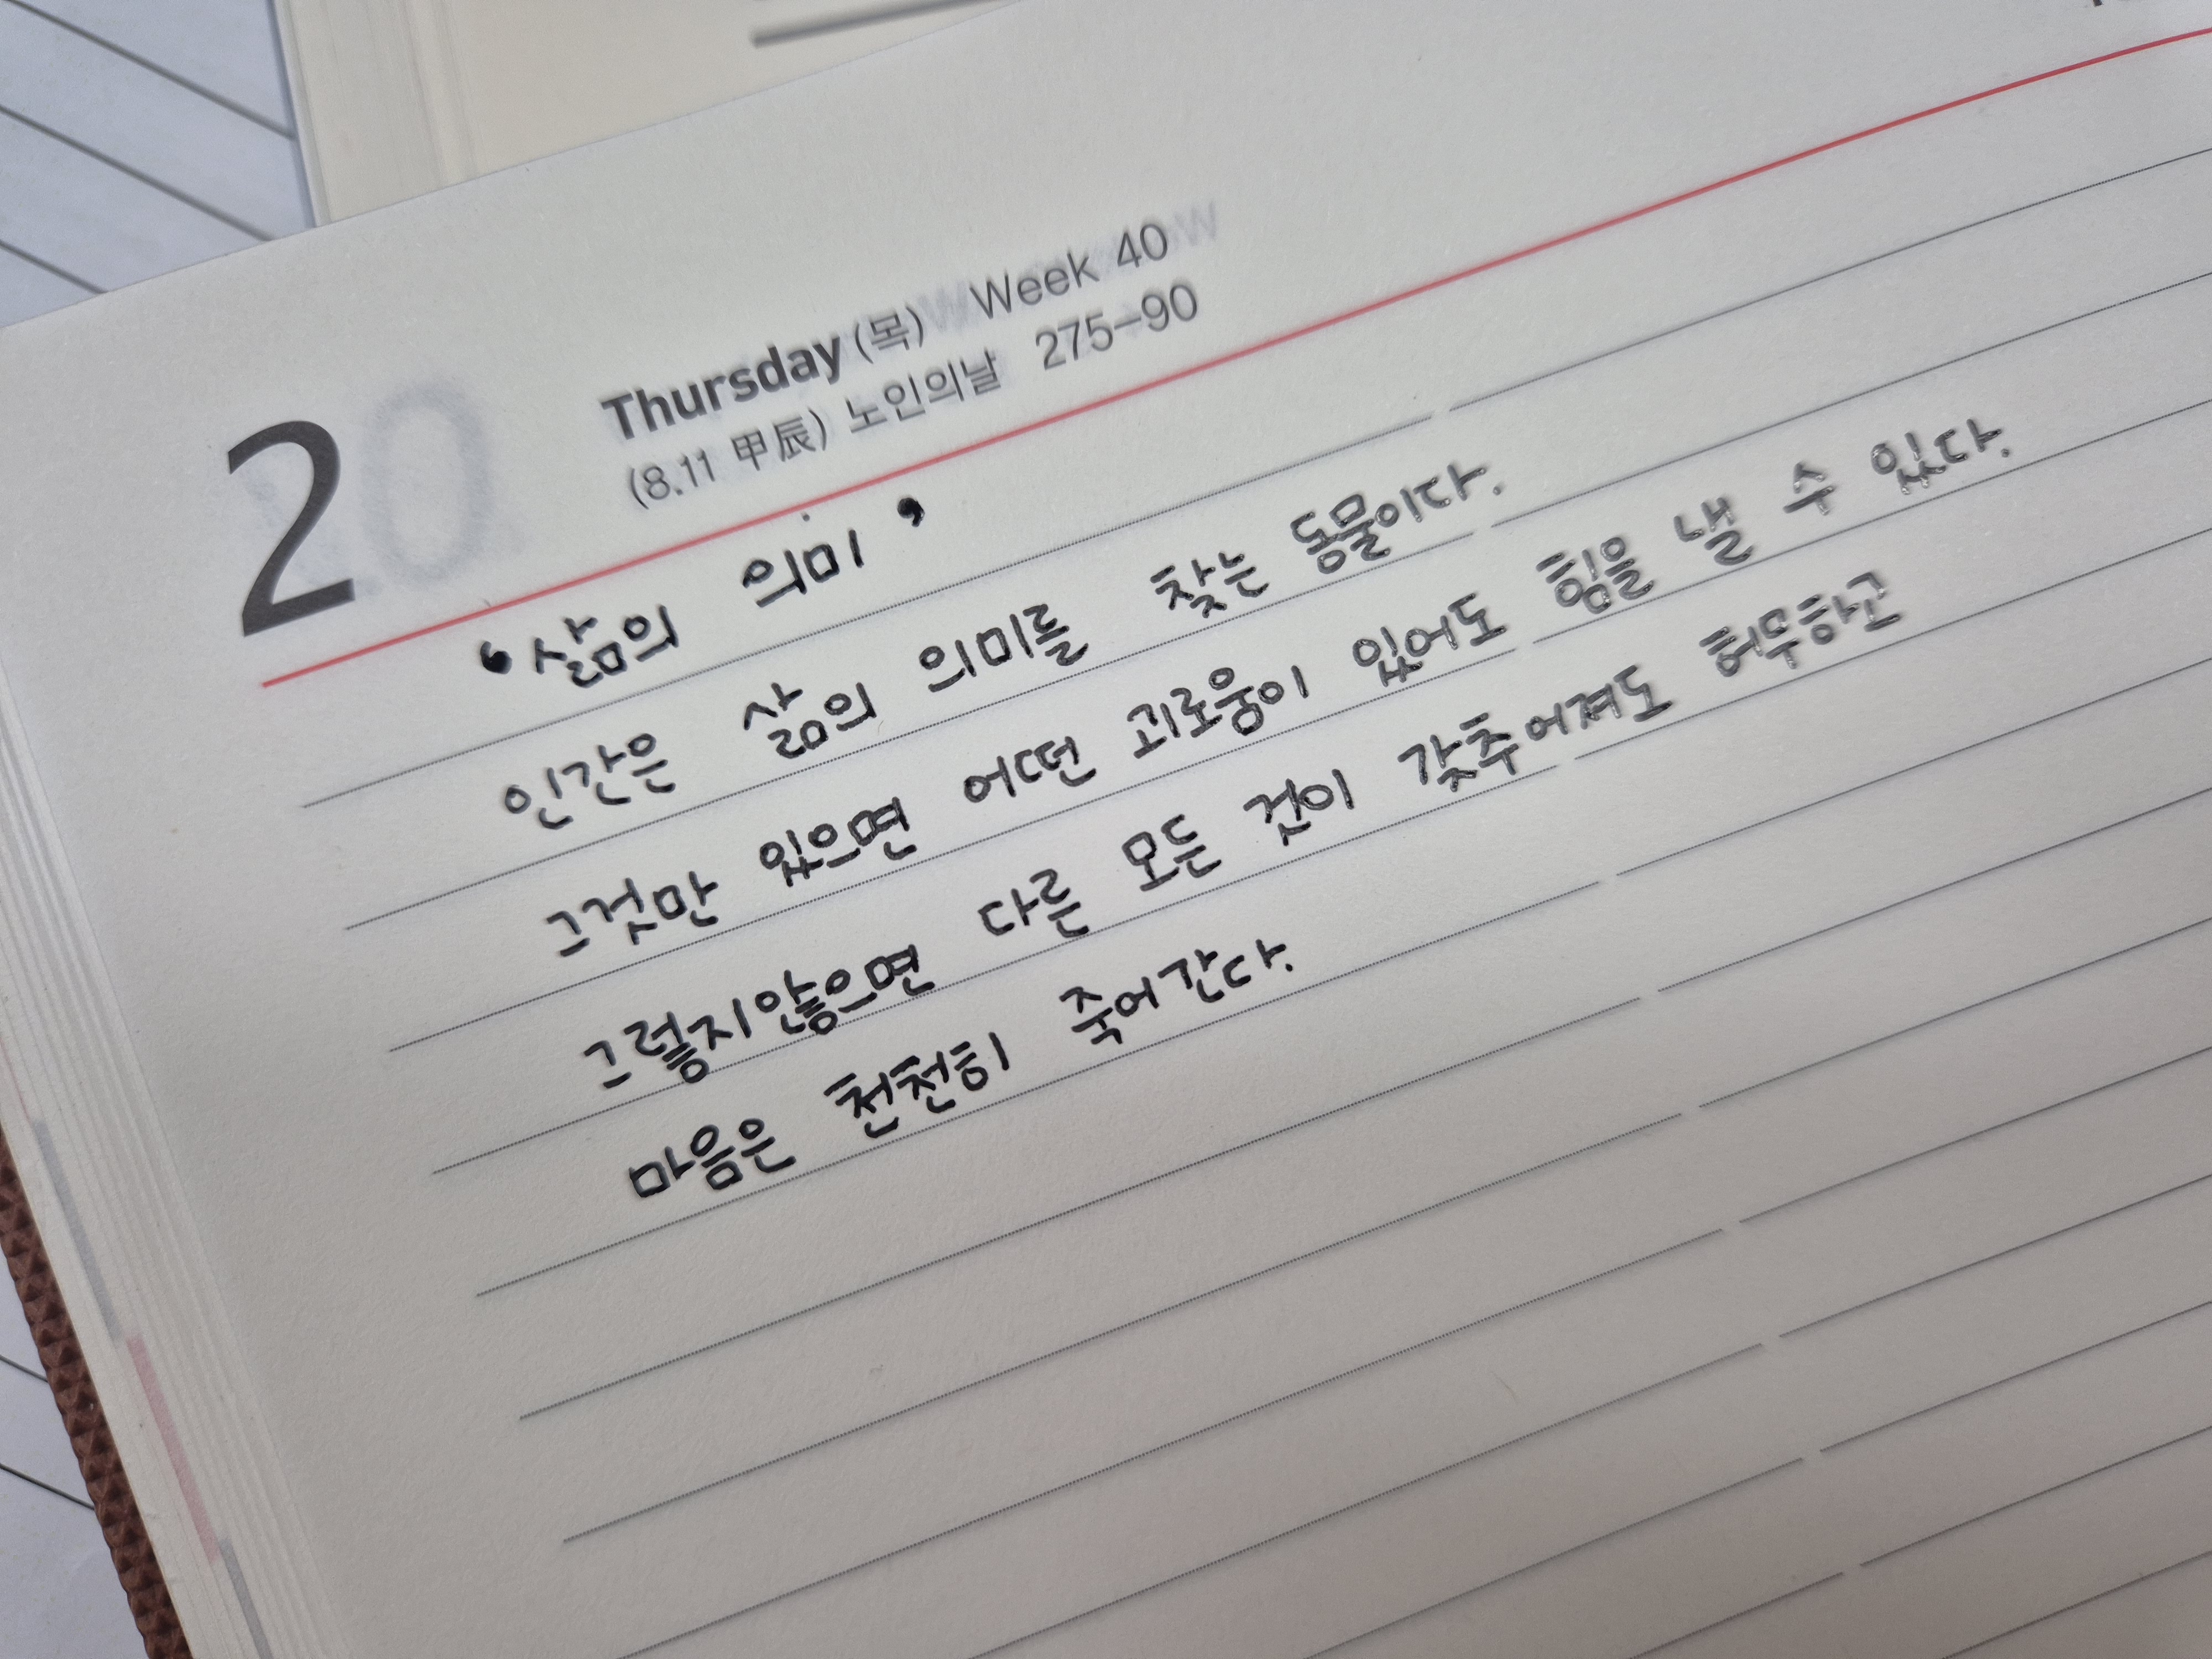 2
Thursday (목) Week 40
(8.11 甲辰) 노인의날 275-90
‘삶의 의미’
인간은 삶의 의미를 찾는 동물이다.
그것만 있으면 어떤 괴로움이 있어도 힘을 낼 수 있다.
그렇지않으면 다른 모든 것이 갖추어져도 허무하고
마음은 천천히 죽어간다.